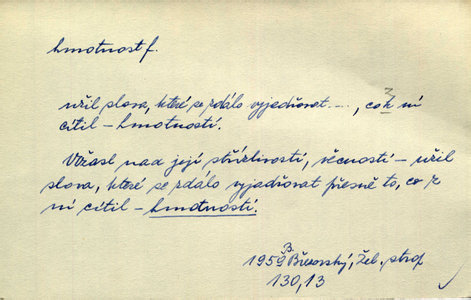 hmotnost f.
užil slova, které se zdálo vyjadřovat ..., co k ní
cítil – hmotností.
Užasl nad její střízlivostí, věcností – užil
slova, které se zdálo vyjadřovat přesně to, co k
ní cítil – hmotností.
1959 B. Březovský, Žel. strop
130,13